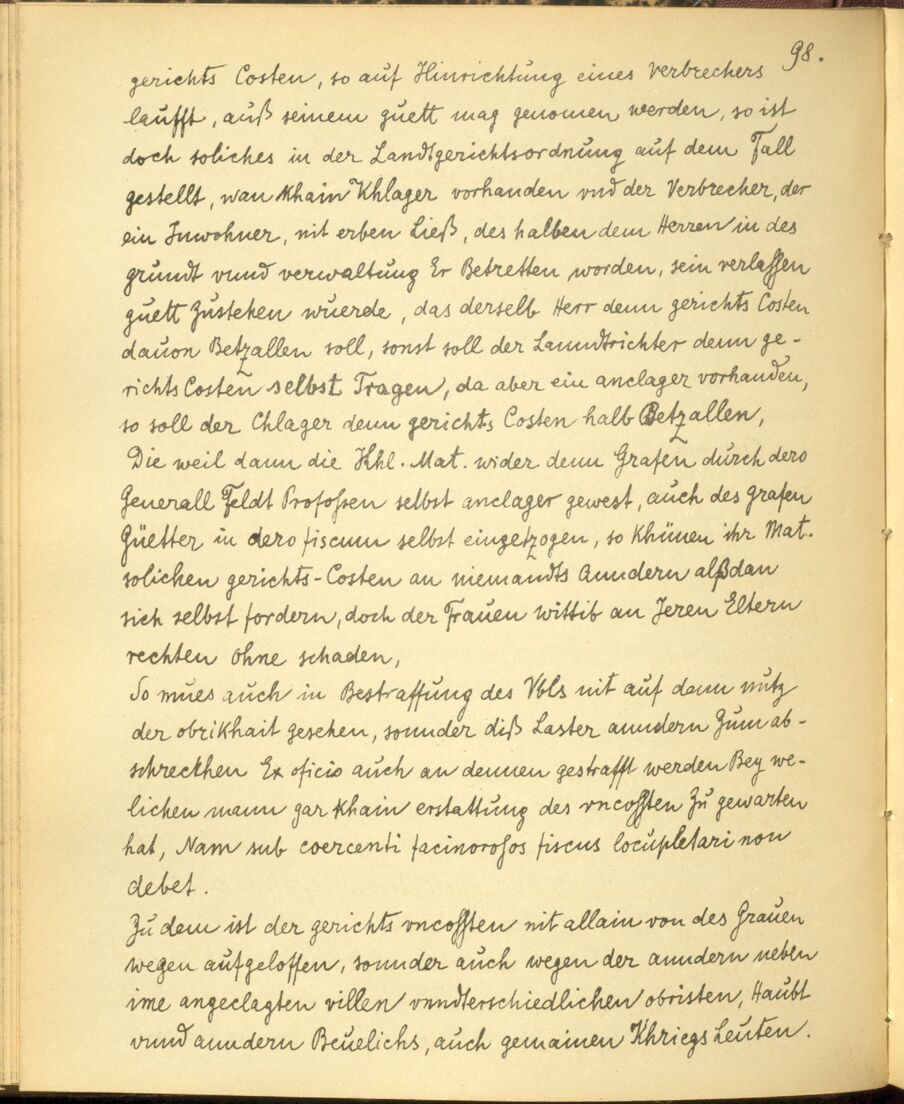 98.
gerichts Costen, so auf Hinrichtung eines verbrechers
laufft, auß seinem guett mag genomen werden, so ist
doch soliches in der Landtgerichtsordnung auf dem Fall
gestellt, wan khain Khlager vorhanden vnd der Verbrecher, der
ein Inwohner, nit erben Ließ, des halben dem Herren in des
grundt vnnd verwaltung Er Betretten worden, sein verlassen
guett Zustehen wuerde, das derselb Herr denn gerichts Costen
dauon Betzallen soll, sonst soll der Lanndtrichter denn ge-
richts Costen selbst Tragen, da aber ein anclager vorhanden,
so soll der Chlager denn gerichts Costen halb Betzallen,
Die weil dann die Khl. Mat. wider denn Grafen durch dero
Generall Feldt Profosen selbst anclager gewest, auch des grafen
Güetter in dero fiscum selbst eingetzogen, so Khünen ihr Mat.
solichen gerichts-Costen an niemandts Anndern alßdan
sich selbst fordern, doch der Frauen wittib an Jeren Eltern
rechten ohne schaden,
So mues auch in Bestraffung des Vbls nit auf denn nutz
der obrikhait gesehen, sonnder diß Laster anndern Zum ab-
schreckhen Ex oficio auch an dennen gestrafft werden Bey we-
lichen mann gar khain erstattung des vncossten Zu gewarten
hat, Nam sub coercenti facinorosos fiscus locupletari non
debet.
Zu dem ist der gerichts vncossten nit allain von des Grauen
wegen aufgeloffen, sonnder auch wegen der anndern neben
ime angeclagten villen vnndterschiedlichen obristen, Haubt
vnnd anndern Beuelichs, auch gemainen Khriegs Leuten.